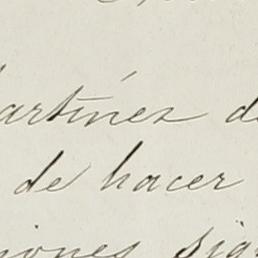 artínez de
de hacer
iones sig